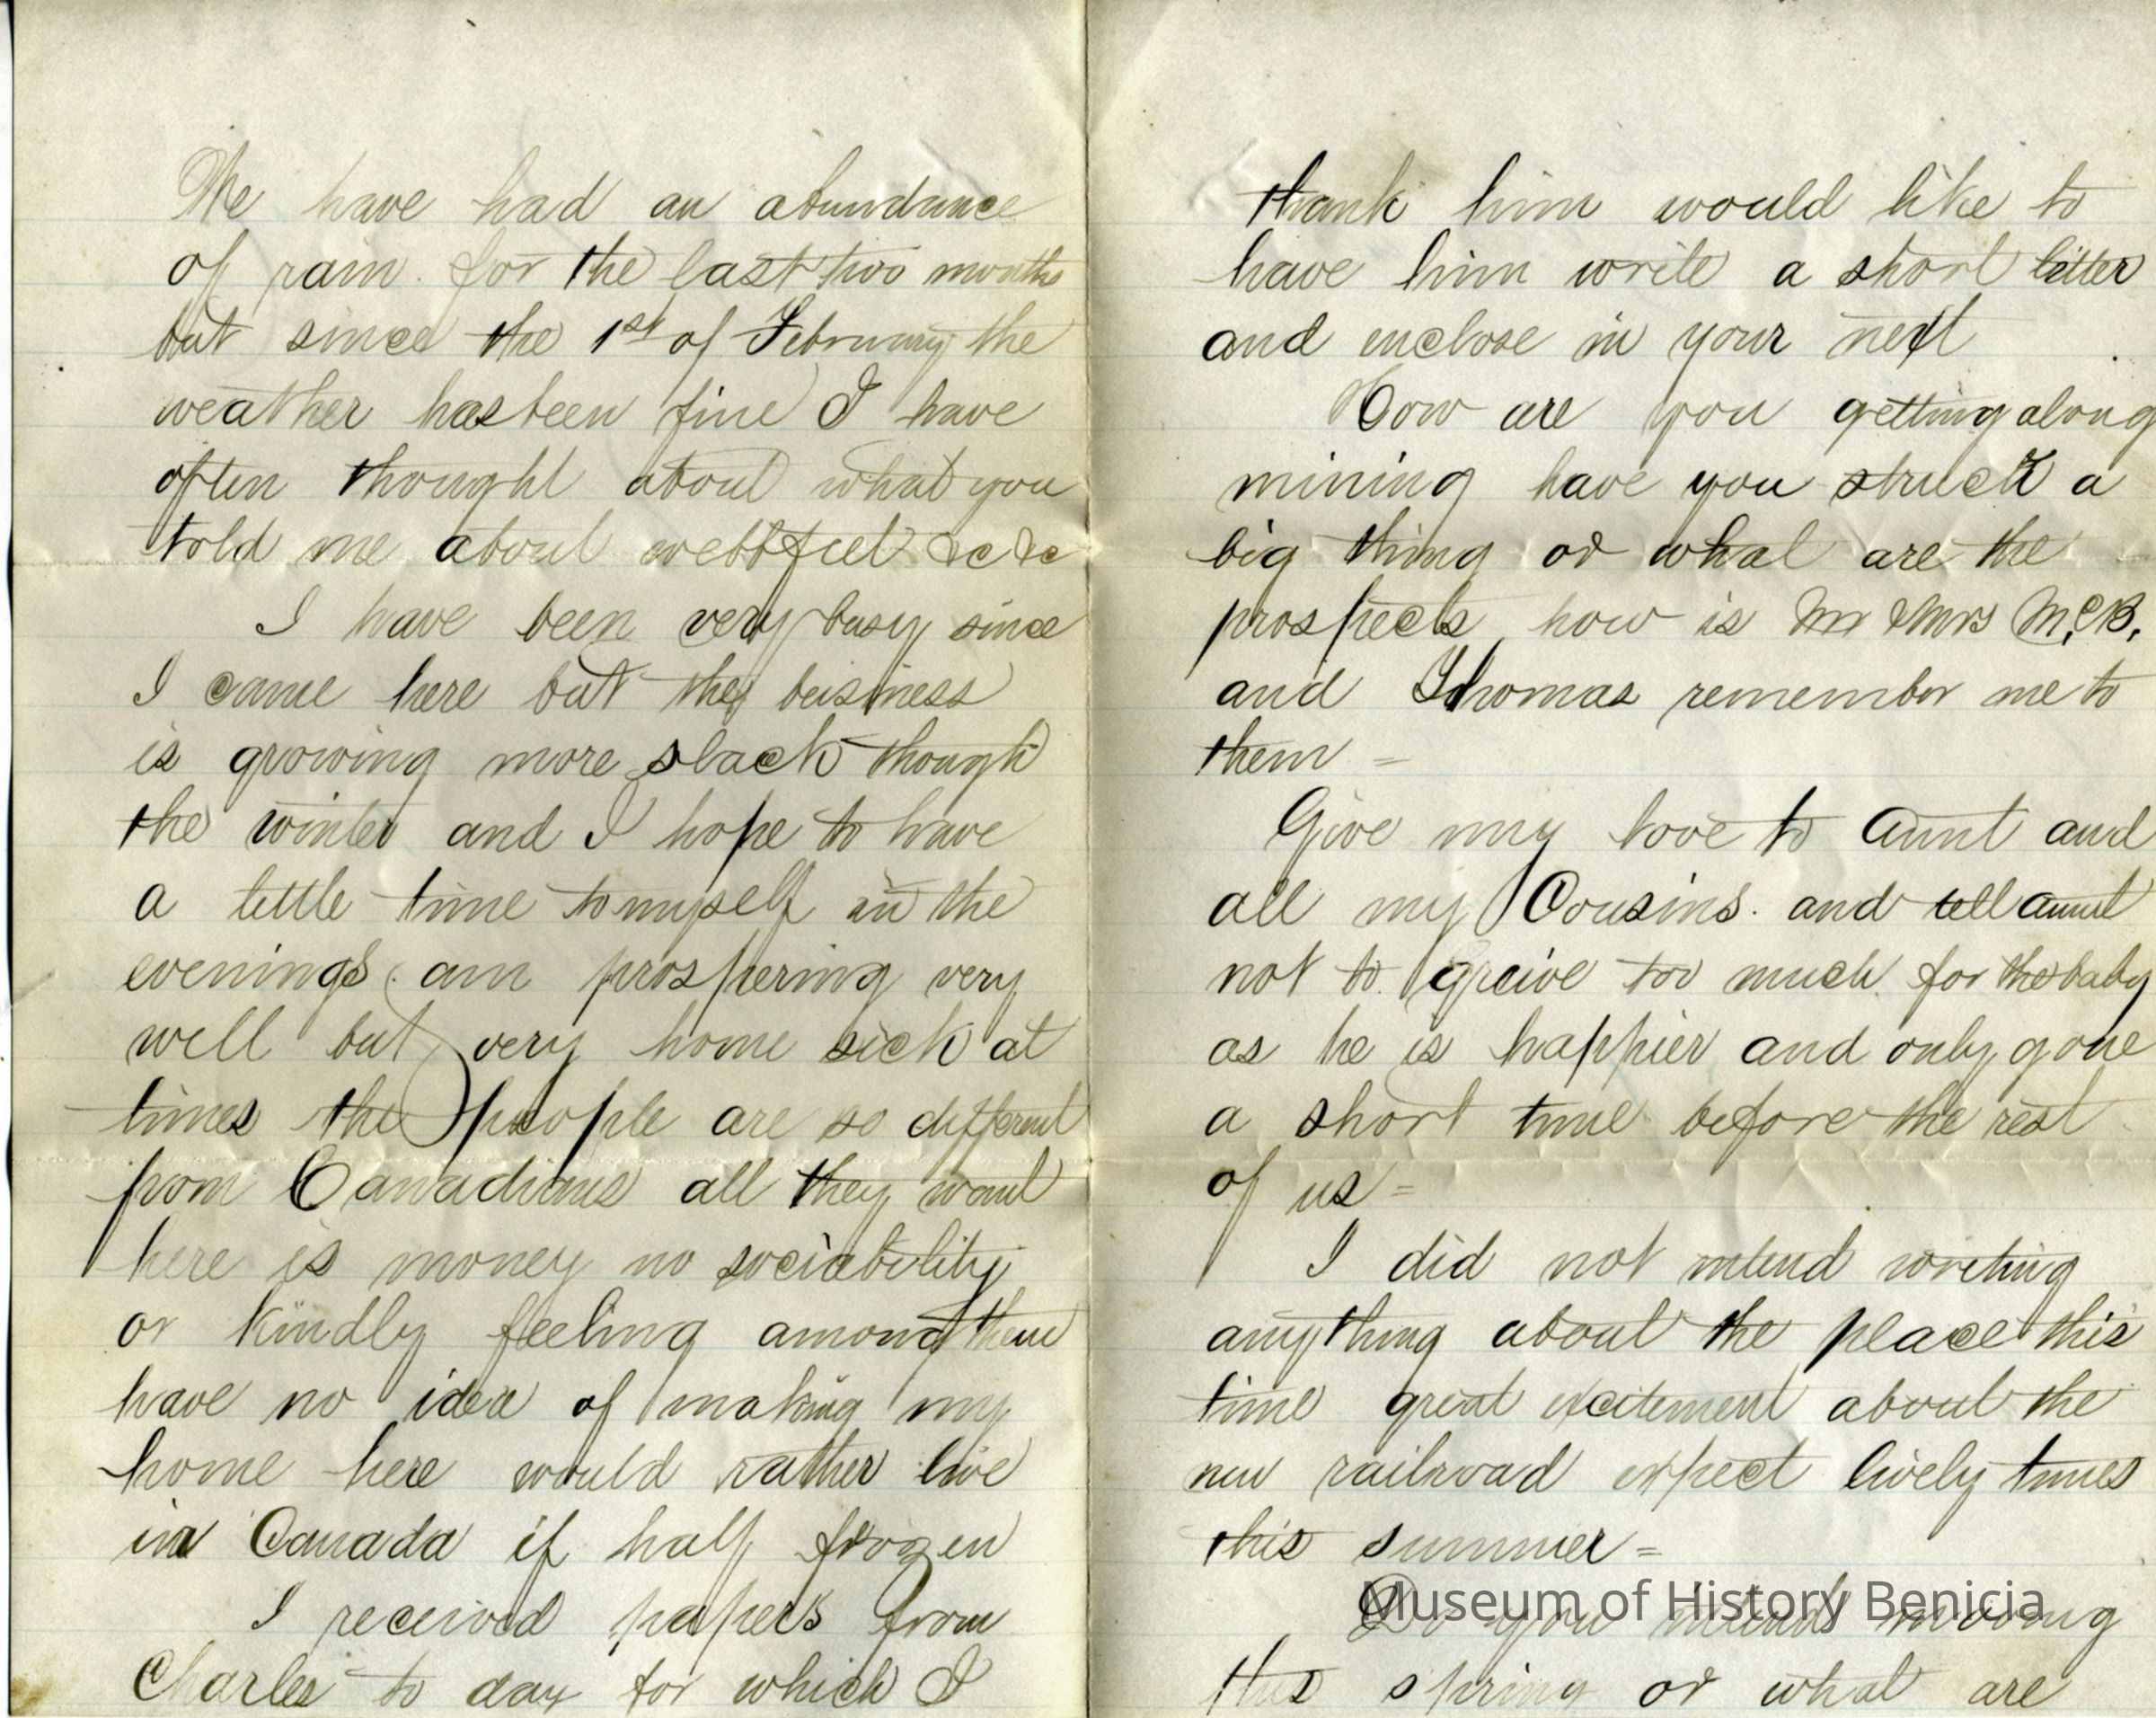 We have had an abundance
of rain. for the last two months
but since the 1st of February the
weather has been fine I have
often thought about what you
told me about webbfeet &c &c
I have been very busy since
I came here but the business
is growing more slack though
the winter and I hope to have
a little time to myself in the
evenings. am prospering very
well but very home sick at
times the people are so different
from Canadians all they want
here is money no sociability
or kindly feeling among them
have no idea of making my
home here would rather live
in Canada if half frozen
I received papers from
Charles to day for which I
thank him would like to
have him write a short letter
and enclose in your next
How are you getting along
mining have you struck a
big thing or what are the
prospects how is Mr & Mrs McB.
and Thomas remember me to
them =
Give my love to Aunt and
all my Cousins. and tell aunt
not to greive too much for the baby
as he is happier and only gone
a short time before the rest
of us =
I did not intend writing
anything about the place this
time great excitement about the
new railroad expect lively times
this summer =
Do you intend moving
this spring or what are
Museum of History Benicia